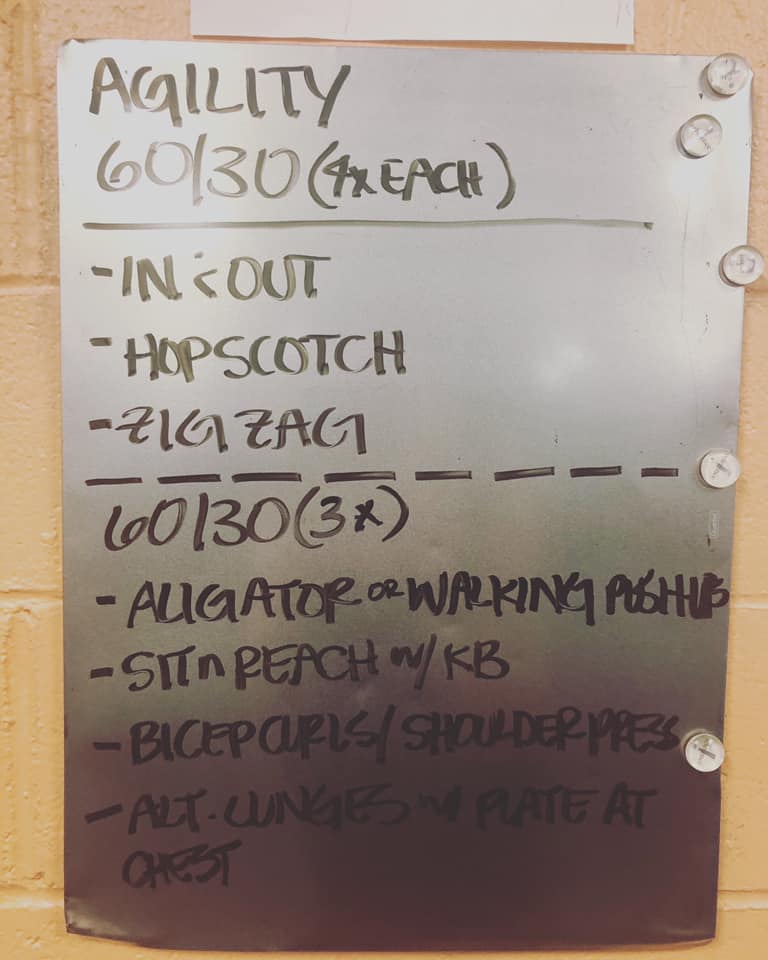 AGILITY
60/30 (4x EACH)
-IN & OUT
-HOPSCOTCH
-ZIG ZAG
60/30 (3x)
- ALIGATOR OR WALKING PUSHUPS
- SIT n REACH w/ KB
- BICEP CURLS / SHOULDER PRESS
- ALT. LUNGES w/ PLATE AT
CHEST